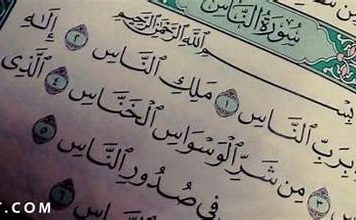 سُورَةُ النَّاسِ
بِسْمِ اللَّهِ الرَّحْمَٰنِ الرَّحِيمِ
بِرَبِّ النَّاسِ ١ مَلِكِ النَّاسِ ٢ إِلَٰهِ
٣ مِن شَرِّ الْوَسْوَاسِ الْخَنَّاسِ ٤ الَّذِي
فِي صُدُورِ النَّاسِ ٥
٦
T.COM